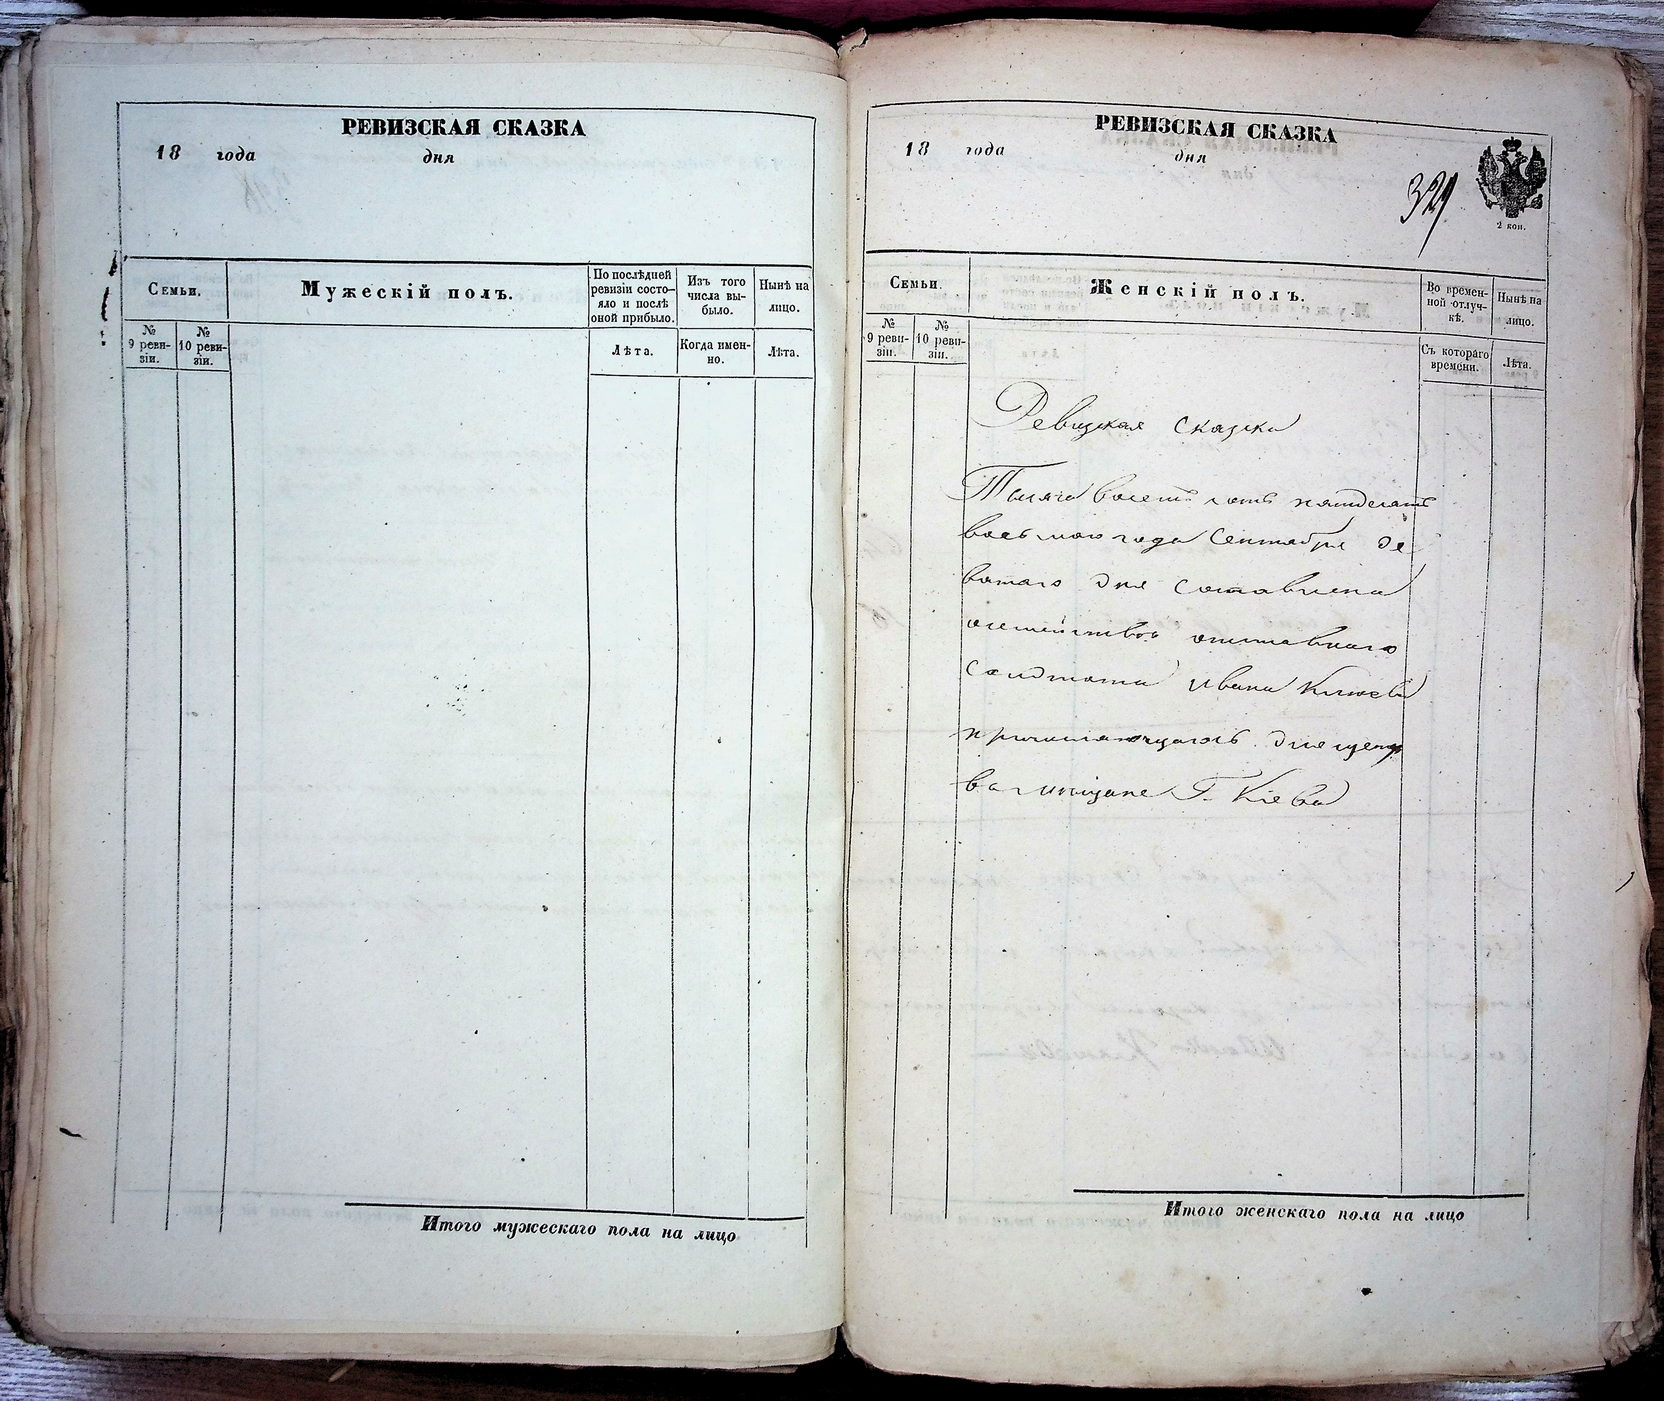 РЕВИЗСКАЯ СКАЗКА
18 года дня
Семьи.
Мужескій полъ.
По послѣдней ревизіи состояло и послѣ оной прибыло.
Изъ того числа выбыло.
Нынѣ на лицо.
№ 9 ревизіи.
№ 10 ревизіи.
Лѣта.
Когда именно.
Лѣта.
Итого мужескаго пола на лицо
РЕВИЗСКАЯ СКАЗКА
18 года дня
329
2 коп.
Семьи.
Женскій полъ.
Во временной отлучкѣ.
Нынѣ на лицо.
№ 9 ревизіи.
№ 10 ревизіи.
Съ котораго времени.
Лѣта.
Ревизкая сказка
Тысяча восемъ сотъ пятдесятъ
восьмого года Сентября де
вятаго дня составлена
о семействѣ отставнаго
Солдата Ивана
причисляющагося
въ мѣщане Г. Кіева
Итого женскаго пола на лицо